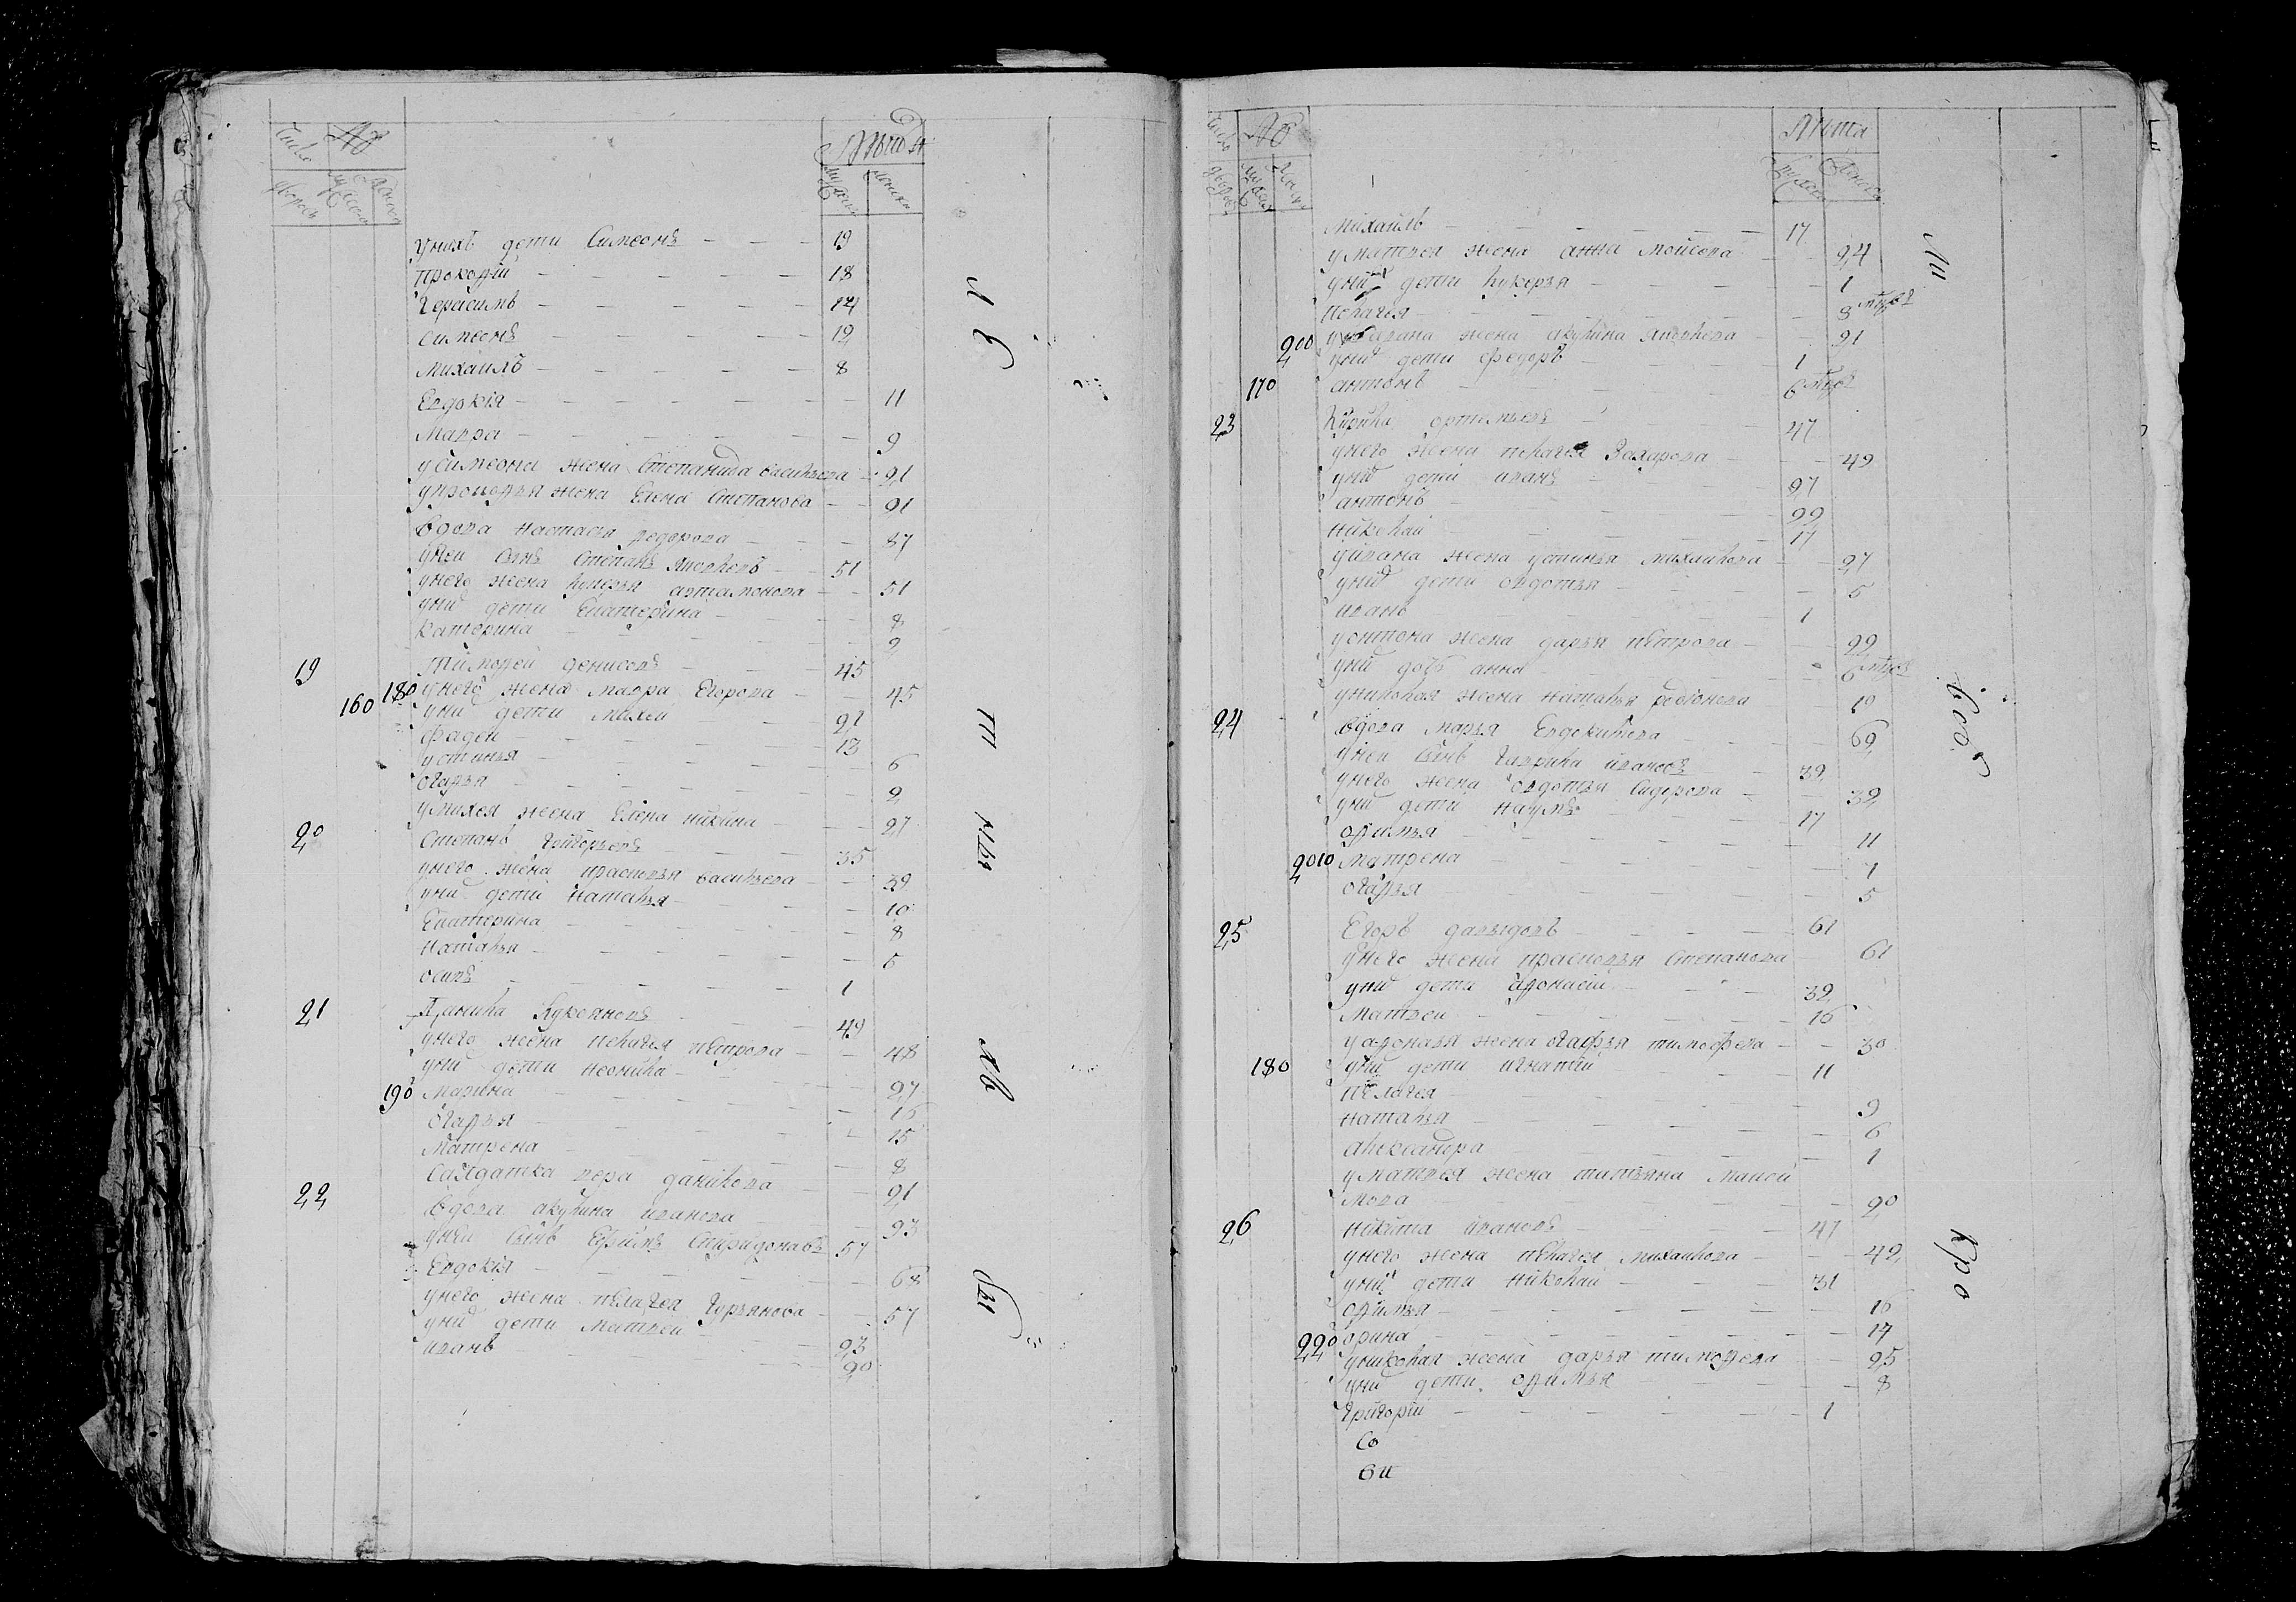 Число №
Лѣта
дворовъ мужеска женска
мужеска женска
у нихъ дети Симеонъ 19
Прокофій 18
Герасимъ 14
Симеонъ 12
Михаилъ 8
Евдокія 11
Мавра 9
у Симеона жена Степанида Васильева 21
у Прокофья жена Елена Степанова 21
вдова Настасья Федорова 87
у неи сынъ Степанъ Яковлевъ 51
у него жена Лукерья Артамонова 51
у нихъ дети Екатерина 8
Катерина 2
19 Тимофей Денисовъ 45
180 у него жена Мавра Егорова 45
160 у нихъ дети Михей 21
Фадей 13
Устинья 6
Огафья 2
у Михея жена Елена Никина 27
20 Степанъ Григорьевъ 35
у него жена Прасковья Васильева 32
у нихъ дети Наталья 10
Екатерина 8
Наталья 5
Осипъ 1
21 Данила Лукеяновъ 49
у него жена Пелагея Петрова 48
у нихъ дети Неонила 27
190 Марина 15
Огафья 15
Матрена 8
Салдатка Вера Данилова 21
22 вдова Акулина Иванова 93
у неи сынъ Ефимъ Спиридоновъ 57
Евдокія 68
у него жена Пелагея Гурьянова 57
у нихъ дети Матвеи 23
Иванъ 20
Число №
Лѣта
дворовъ мужеска женска
мужеска женска
Михаилъ 17
у Матвея жена Анна Моисеева 24
у нихъ дети Лукерья 1
Пелагея 8
200 жена Акулина Яковлева 21
у нихъ дети Федоръ 1
170 Антонъ 6
23 Кирила Ортемьевъ 47
у него жена Пелагея Захарова 49
у нихъ дети Иванъ 27
Антонъ 22
Николай 17
у Ивана жена Устинья Михайлова 27
у нихъ дети Овдотья 5
Иванъ 1
у Онтона жена Дарья Петрова 22
у нихъ дочь Анна 6
у Николая жена Наталья Родіонова 19
24 вдова Марья Евдокимова 62
у неи сынъ Гаврила Ивановъ 32
у него жена Овдотья Сидорова 32
у нихъ дети Наумъ 17
Офимья 11
2010 Матрена 7
Огафья 5
25 Егоръ Давыдовъ 61
у него жена Прасковья Степанова 61
у нихъ дети Афонасій 32
Матвеи 16
у Афонасья жена Огафья Тимофеева 30
180 у нихъ дети Игнатій 11
Пелагея
Наталья 9
Александра 6
1
у Матвея жена Татьяна
20
26 Никита Ивановъ 47
у него жена Пелагея Михайлова 42
у нихъ дети Николай 31
Офимья 16
Орина 14
220 у Николая жена Дарья Тимофеева 25
у нихъ дети Офимья 8
Григорій 1